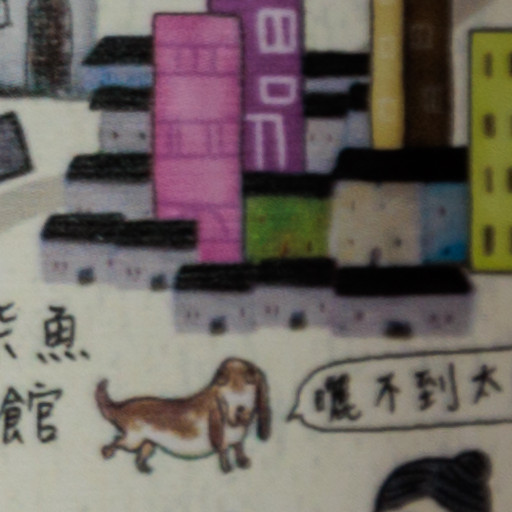 魚
館
曬不到太